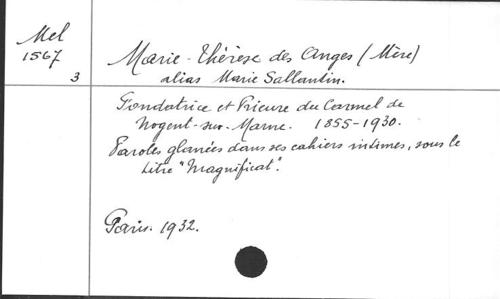 Mel
1567
3
Marie-Thérèse des Anges (Mère)
alias Marie Sallantin.
Fondatrice et Prieure du Carmel de
Nogent-sur-Marne. 1855-1930.
Paroles glanées dans ses cahiers intimes, sous le
titre "Magnificat".
Paris. 1932.